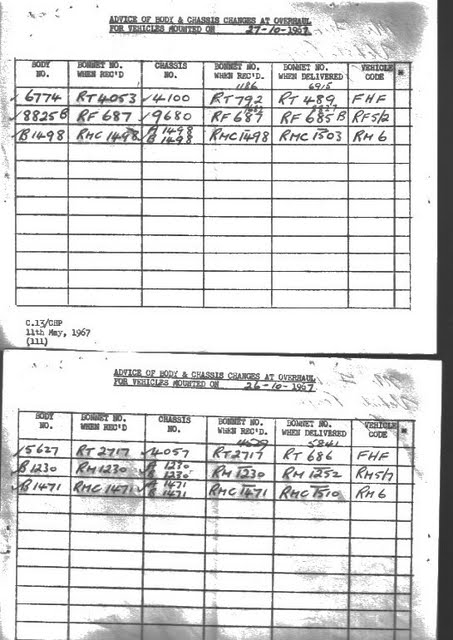 ADVICE OF BODY & CHASSIS CHANGES AT OVERHAUL
FOR VEHICLES MOUNTED ON 27-10-1967
BODY NO. BONNET NO. WHEN REC'D CHASSIS NO. BONNET NO. WHEN REC'D. BONNET NO. WHEN DELIVERED VEHICLE CODE *
1186 6915
✓6774 RT4053 ✓4100 RT792 RT489 FHF
✓8825B RF687 ✓9680 RF687 RF685B RF5/2
✓B1498 RMC1498 A1498 B1498 RMC1498 RMC1503 RM6
C.13/CHP
11th May, 1967
(111)
ADVICE OF BODY & CHASSIS CHANGES AT OVERHAUL
FOR VEHICLES MOUNTED ON 26-10-1967
BODY NO. BONNET NO. WHEN REC'D. CHASSIS NO. BONNET NO. WHEN REC'D. BONNET NO. WHEN DELIVERED VEHICLE CODE *
4629 5841
✓5627 RT2717 ✓4057 RT2717 RT686 FHF
✓B1230 RM1230 A1230 B1230 RM1230 RM1252 RM5/7
✓B1471 RMC1471 A1471 B1471 RMC1471 RMC1510 RM6